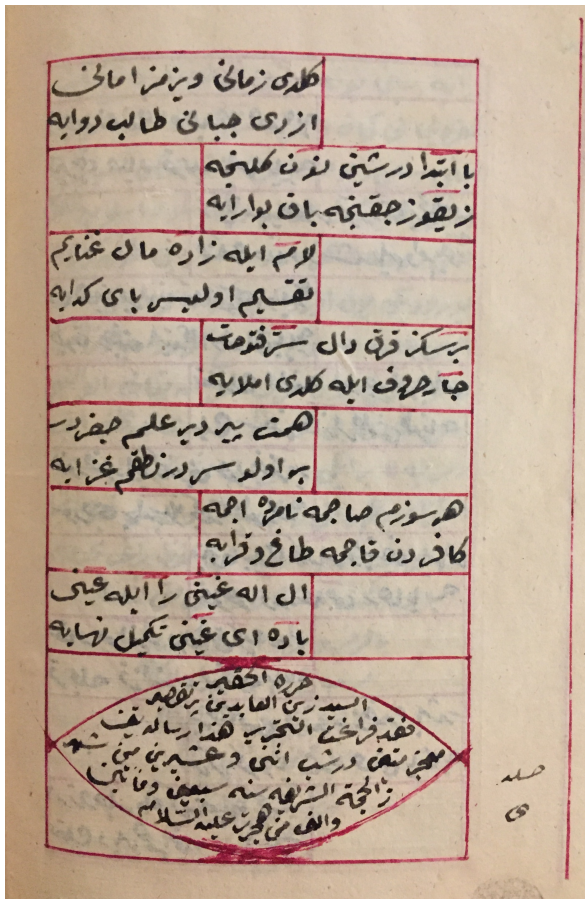 كلدى زمانى ويزمز امانى
ازدى جبانى طالب دوايه
با ابتدا در شينى نون كلنجه
زيقوز جقنجه باق بوارايه
لامم ايله زاره مال غنايم
تقسيم اولسر باى كدايه
بر سكز قرق دال ستر فتوحات
جار حروف ايله كلدى املايه
همت پيردير علم جفردر
بر اولو سر در نطقم غزايه
هر سوزم صاجمه نامرده اجمه
كافردن قاجمه طاغ وقرايه
ال اله غينى را ايله عينى
ياره اى غينى تكميل نهايه
حرره الحقير
السيد زين العابدين پر تقصير
فقد فراغت التحرير هذا رساله
فى شب اثنى وعشرين من شهر
ذالحجة الشريفه سنه سبعين ومأتين
والف من هجرت عليه السلام